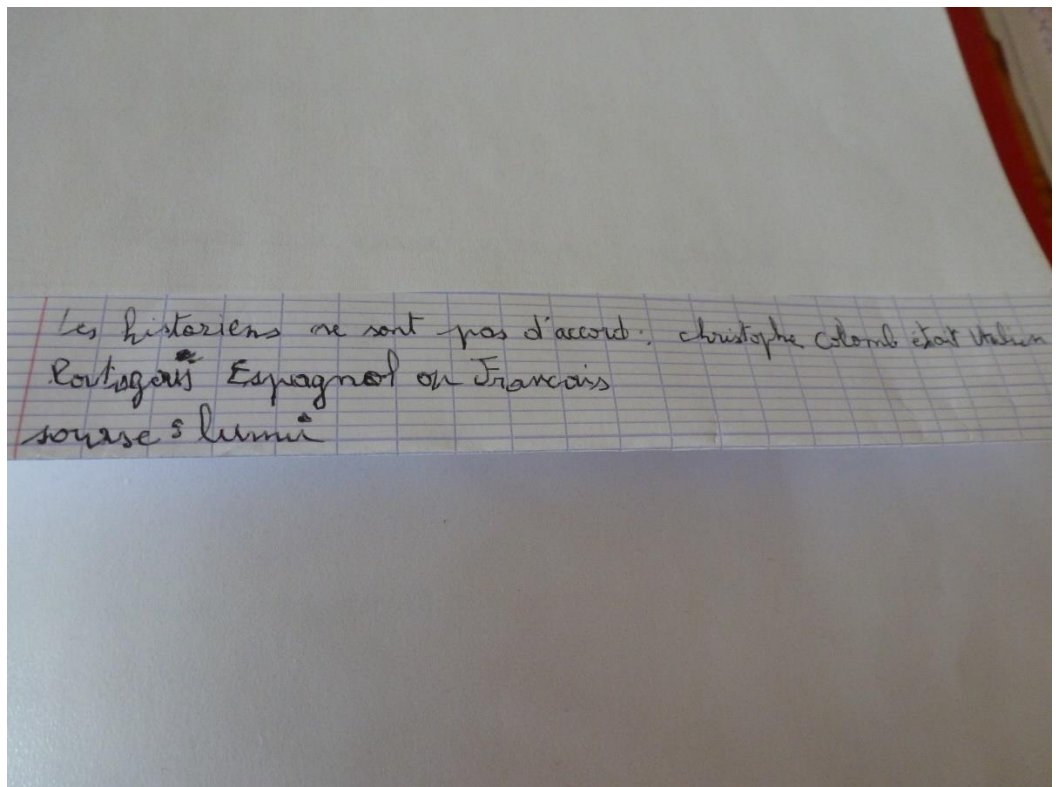 Les historiens ne sont pas d'accord : christophe colomb était Italien
Portugais Espagnol ou Francais
sourse : lumni